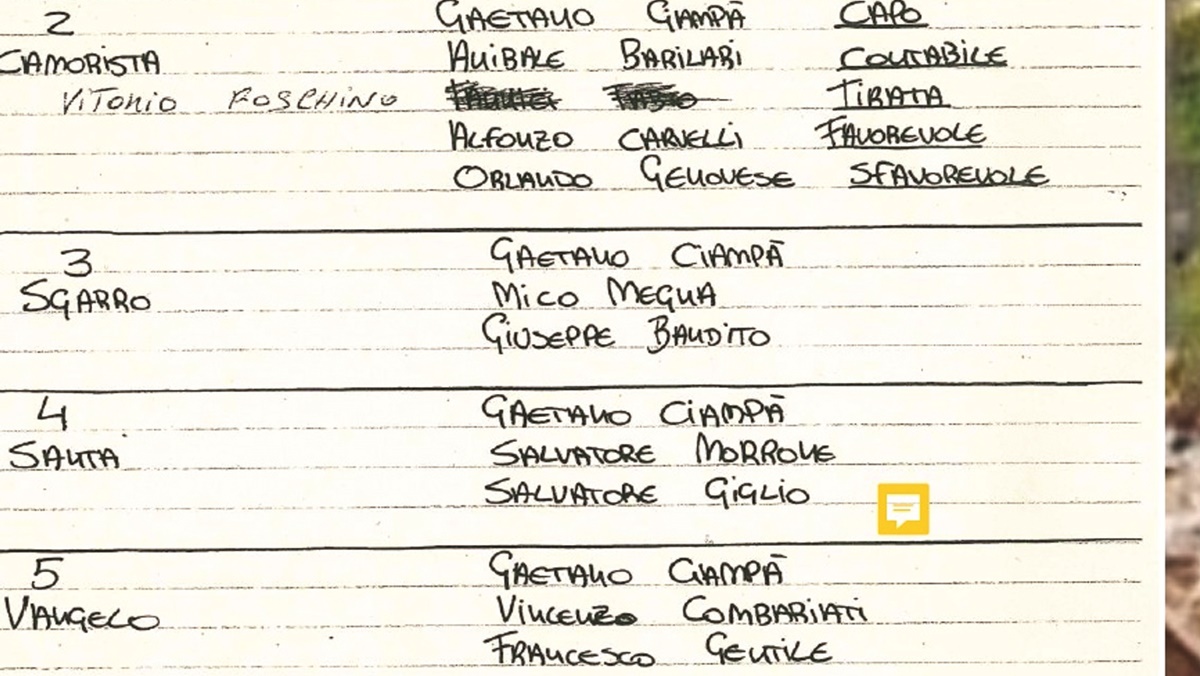 2 GAETANO CIAMPĀ CAPO
CAMORISTA ANIBALE BARILARI CONTABILE
VITONIO FOSCHINO TIRATA
ALFONZO CARVELLI FAVOREVOLE
ORLANDO GENOVESE SFAVOREVOLE
3 GAETANO CIAMPĀ
SGARRO MICO MEGNA
GIUSEPPE BANDITO
4 GAETANO CIAMPĀ
SANTA SALVATORE MORRONE
SALVATORE GIGLIO
5 GAETANO CIAMPĀ
VANGELO VINCENZO COMBARIATI
FRANCESCO GENTILE